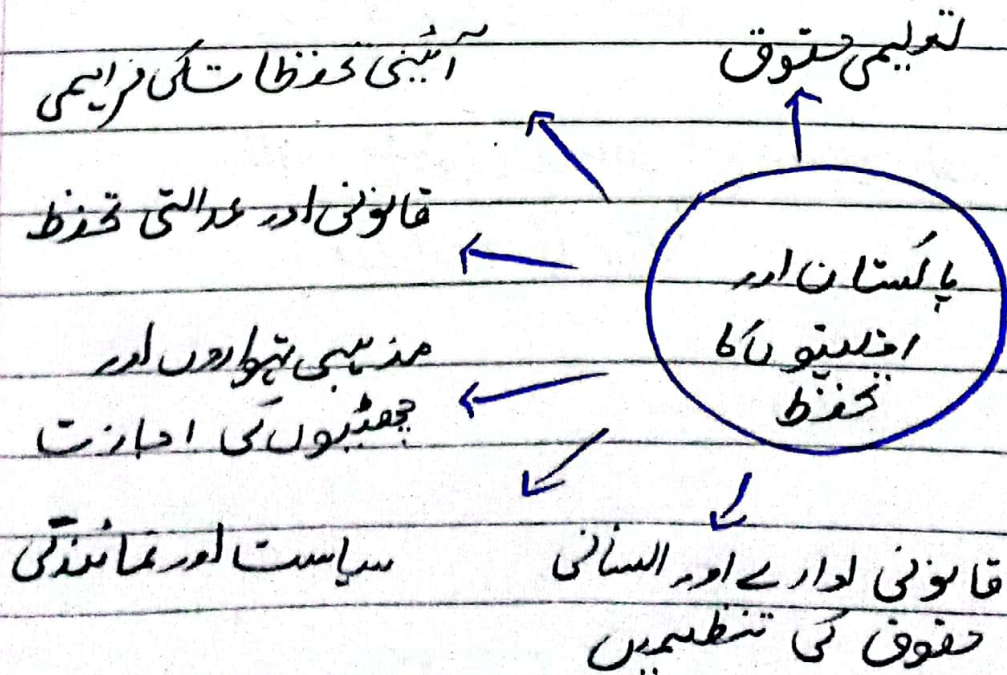 تعلیمی حقوق
آئینی تحفظات کی فراہمی
قانونی اور عدالتی تحفظ
پاکستان اور
اقلیتوں کا
تحفظ
مذہبی تہواروں اور
چھٹیوں کی اجازت
سیاست اور نمائندگی
قانونی ادارے اور انسانی
حقوق کی تنظیمیں